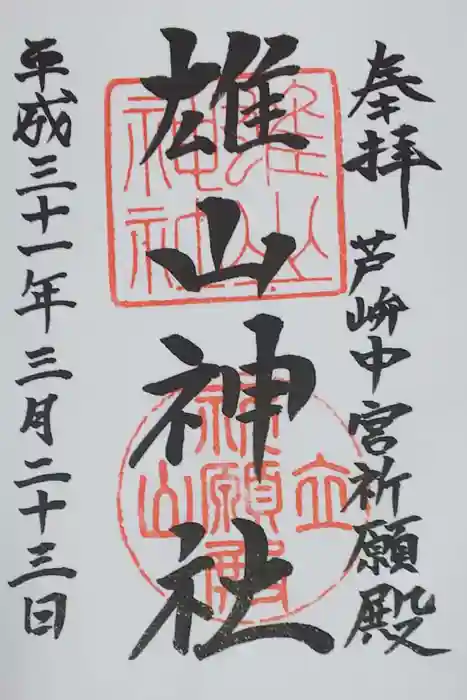 奉拝
芦峅中宮祈願殿
雄山神社
平成三十一年三月二十三日
雄山神社
立山祈願殿